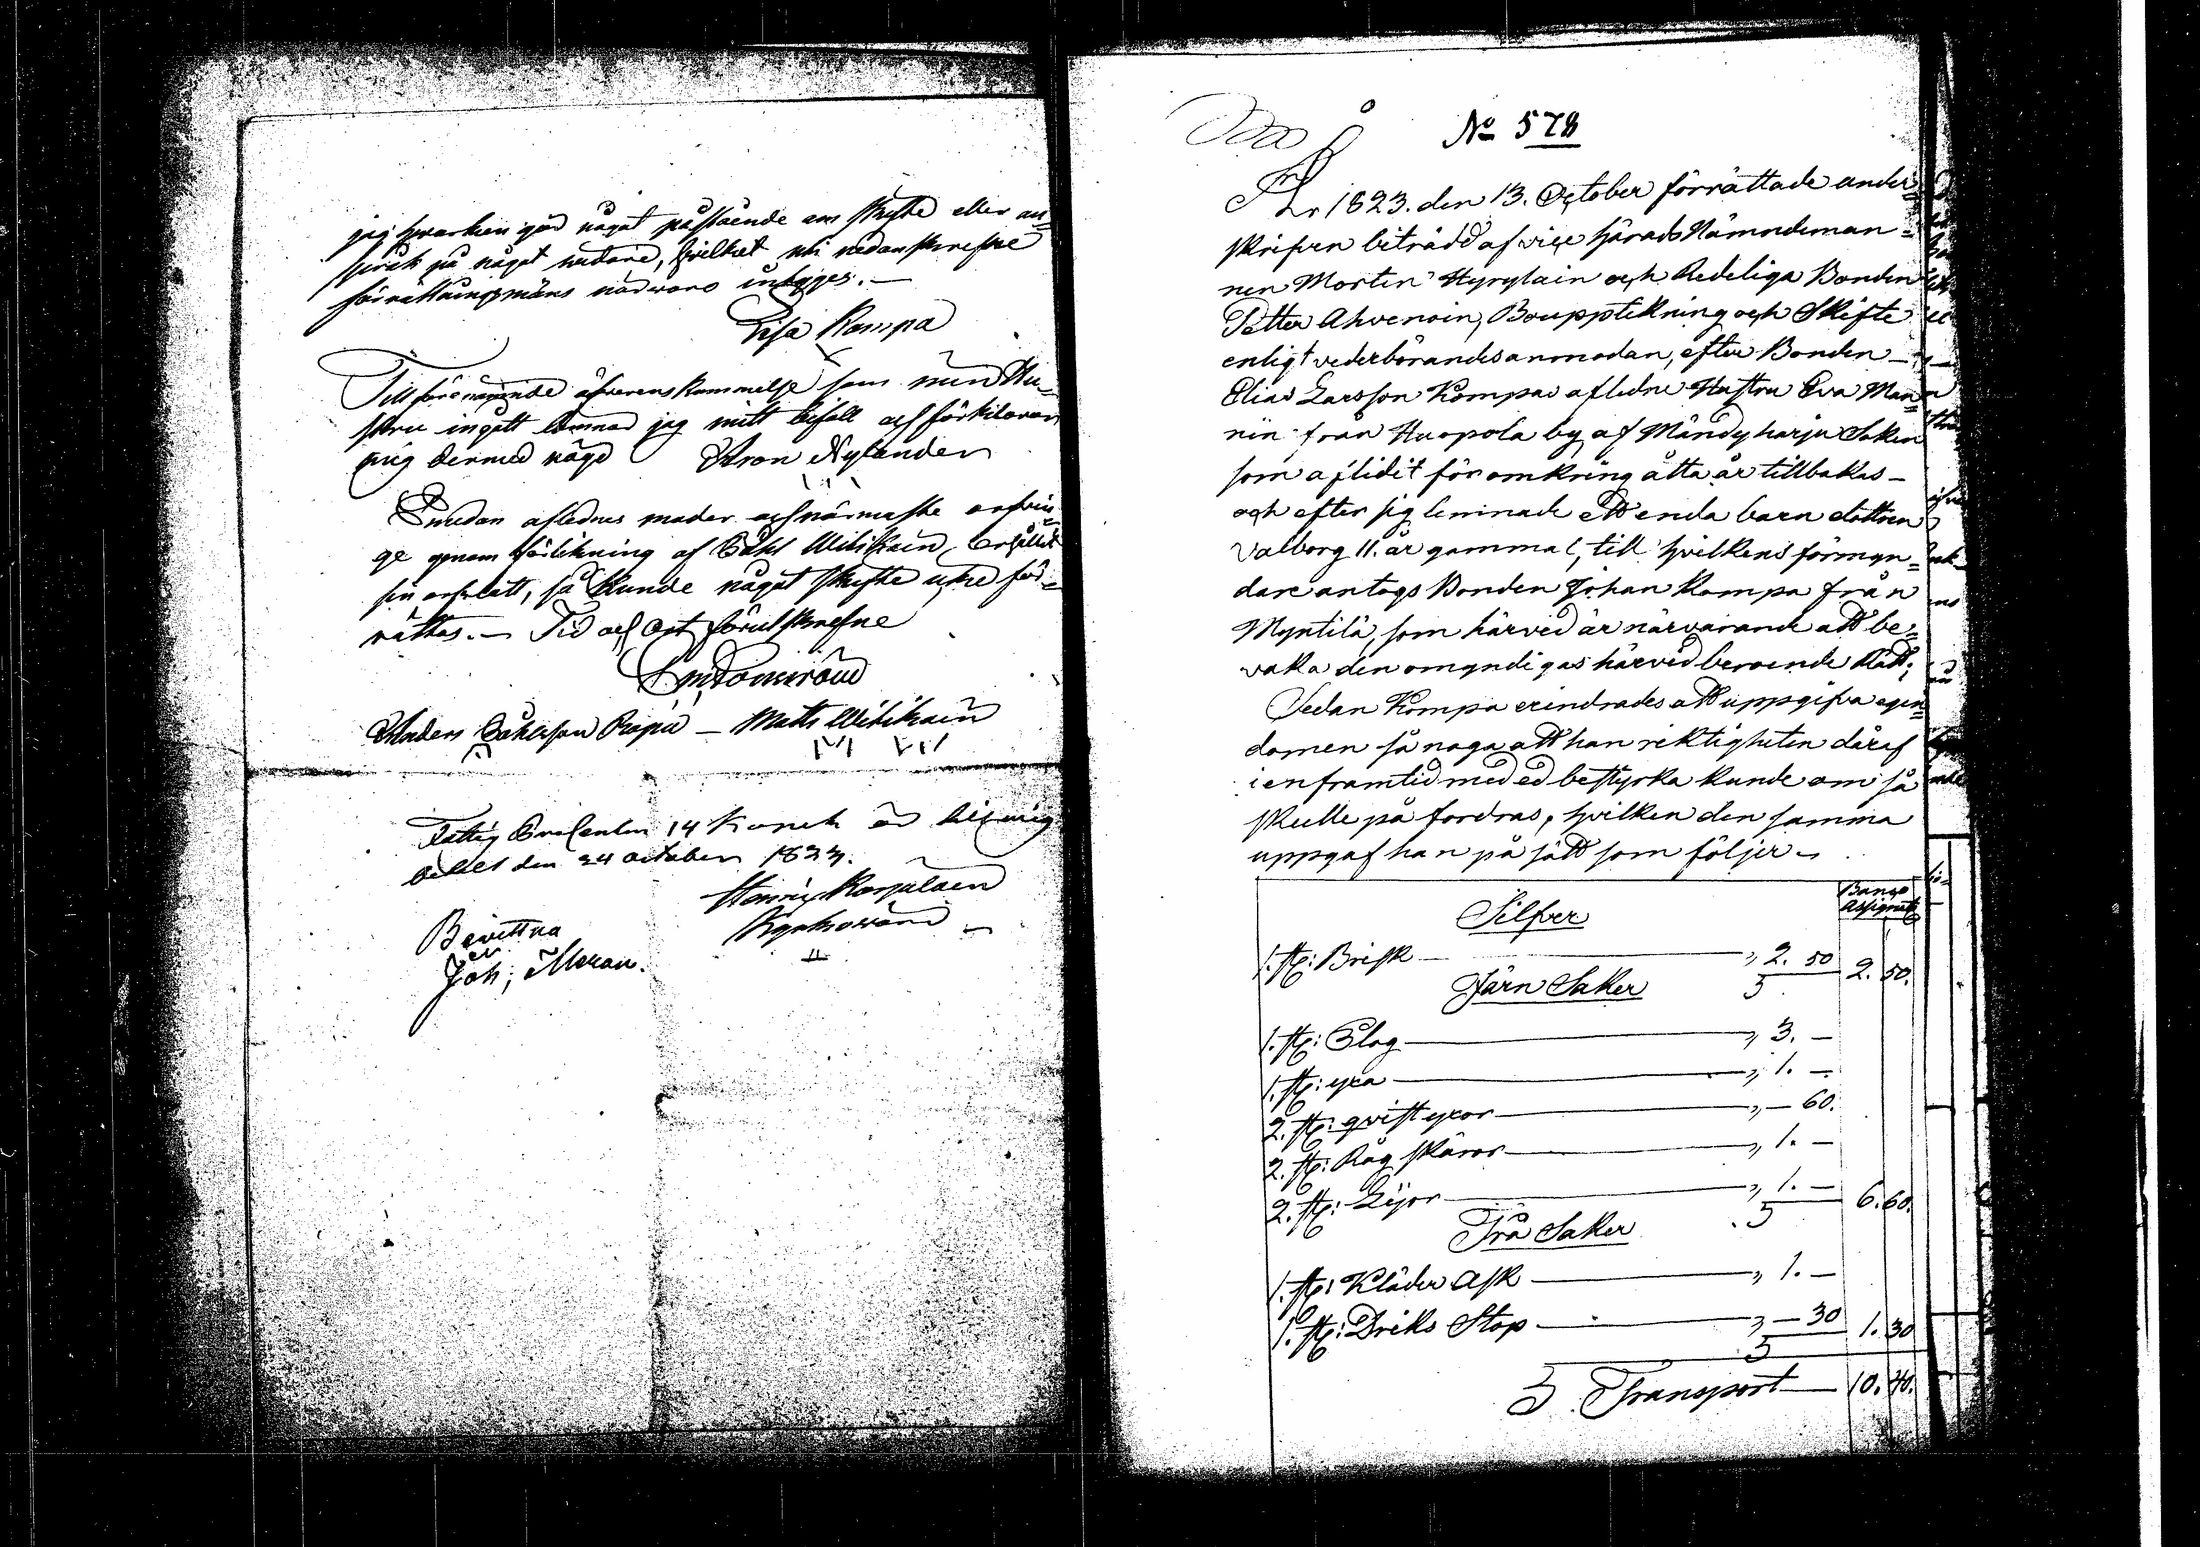 jag hwarken gör något påstående om skifte eller an-
språk på något widare, hvilket uti nedanskrefne
förrättningsmäns närwaro intygges. —
Lisa Kompa
Till förenämnde öfverenskommelse som min Hu-
stru ingått lemnar jag mitt bifall och förklarar
mig dermed nögd Aron Nylander
Emedan aflednes moder och närmaste arfvin-
ge genom förlikning af Påhl Wilikain, erhållit
sin arfslått, så kunde något skifte icke för-
rättas. — Tid och Ort förutskrefne
Anders Påhlsson Popa — Matts Wilikain
Fattig Procenten 14 Kopek är till mig
betalt den 24 October 1823.
Henric Karjalain
Kyrkowärd
Bevittna
Joh; Moran.
No 578
År 1823. den 13. October förrättade under-
skrifven biträdd af vice härads Nämndeman-
nen Morten Hyrylain och Redeliga Bonden
Petter Ahvenain, Bouppteckning och Skifte
enligt vederbörandes anmodan, efter Bonden —
Elias Larsson Kompas aflidne Hustru Eva Man-
nin från Huopola by af Mändyharju Soken
som aflidit för omkring åtta år tillbakas —
och efter sig lemnade ett enda barn dottren
Valborg 11. år gammal, till hvilkens förmyn-
dare antogs Bonden Johan Kompa från
Myntilä, som härved är närvarande att be-
vaka den omyndigas härved beroende Rätt;
Sedan Kompa erindrades att uppgifva egen-
domen så noga att han riktigheten däraf
i en framtid med ed bestyrka kunde om så
skulle på fordras, hvilken den samma
uppgaf han på sätt som följer —
Banco
Assignat
Silfver
1. st: Brisk — „ 2. 50 2. 50.
Järn Saker
1. st: Plog — „ 3. —
1. st: yxa — „ 1. —
2. st: qvist yxor — „ — 60.
2. st: Råg skäror — „ 1. —
2. st: Lijor — „ 1. — 6. 60.
Trä Saker
1. st: Kläder Ask — „ 1. —
1. st: Driks Stop — „ — 30 1. 30
Transport — 10. 40.